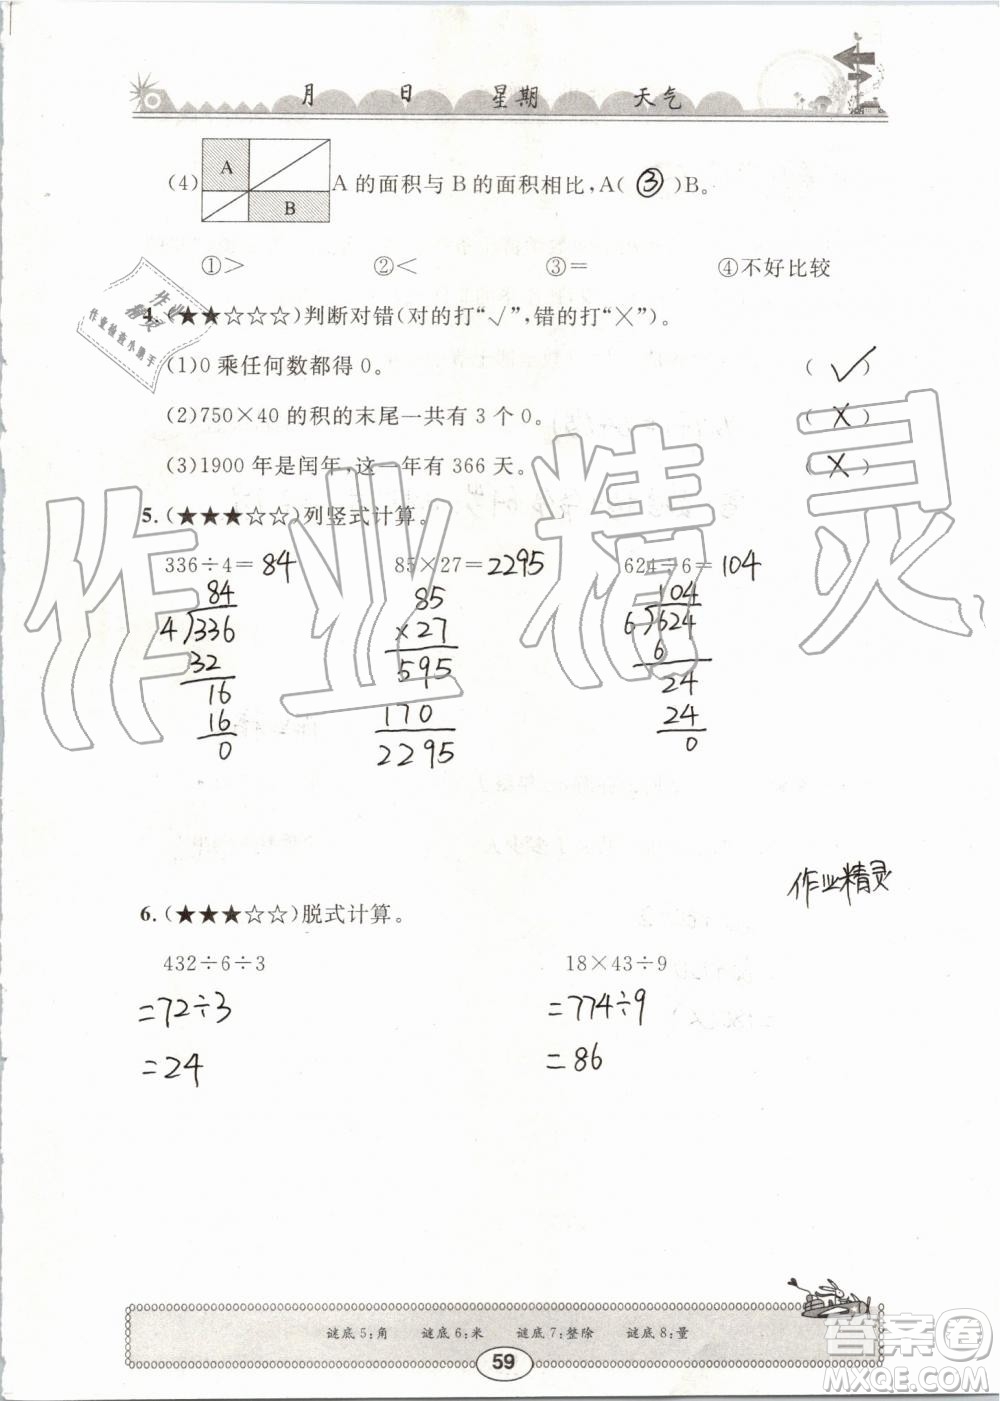 月 日 星期 天气
(4) A B A的面积与B的面积相比,A( ③ )B。
①> ②< ③= ④不好比较
4.(★★☆☆☆)判断对错(对的打“√”,错的打“×”)。
(1)0乘任何数都得0。 (√)
(2)750×40的积的末尾一共有3个0。 (X)
(3)1900年是闰年,这一年有366天。 (X)
5.(★★★☆☆)列竖式计算。
336÷4=84 85×27=2295 624÷6=104
84 85 104
4 336 ×27 6 624
32 595 6
16 170 24
16 2295 24
0 0
作业精灵
6.(★★★☆☆)脱式计算。
432÷6÷3 18×43÷9
=72÷3 =774÷9
=24 =86
谜底5:角 谜底6:米 谜底7:整除 谜底8:量
59
作业精灵
作业检查小助手
作业精灵
答案圈
MXQE.COM